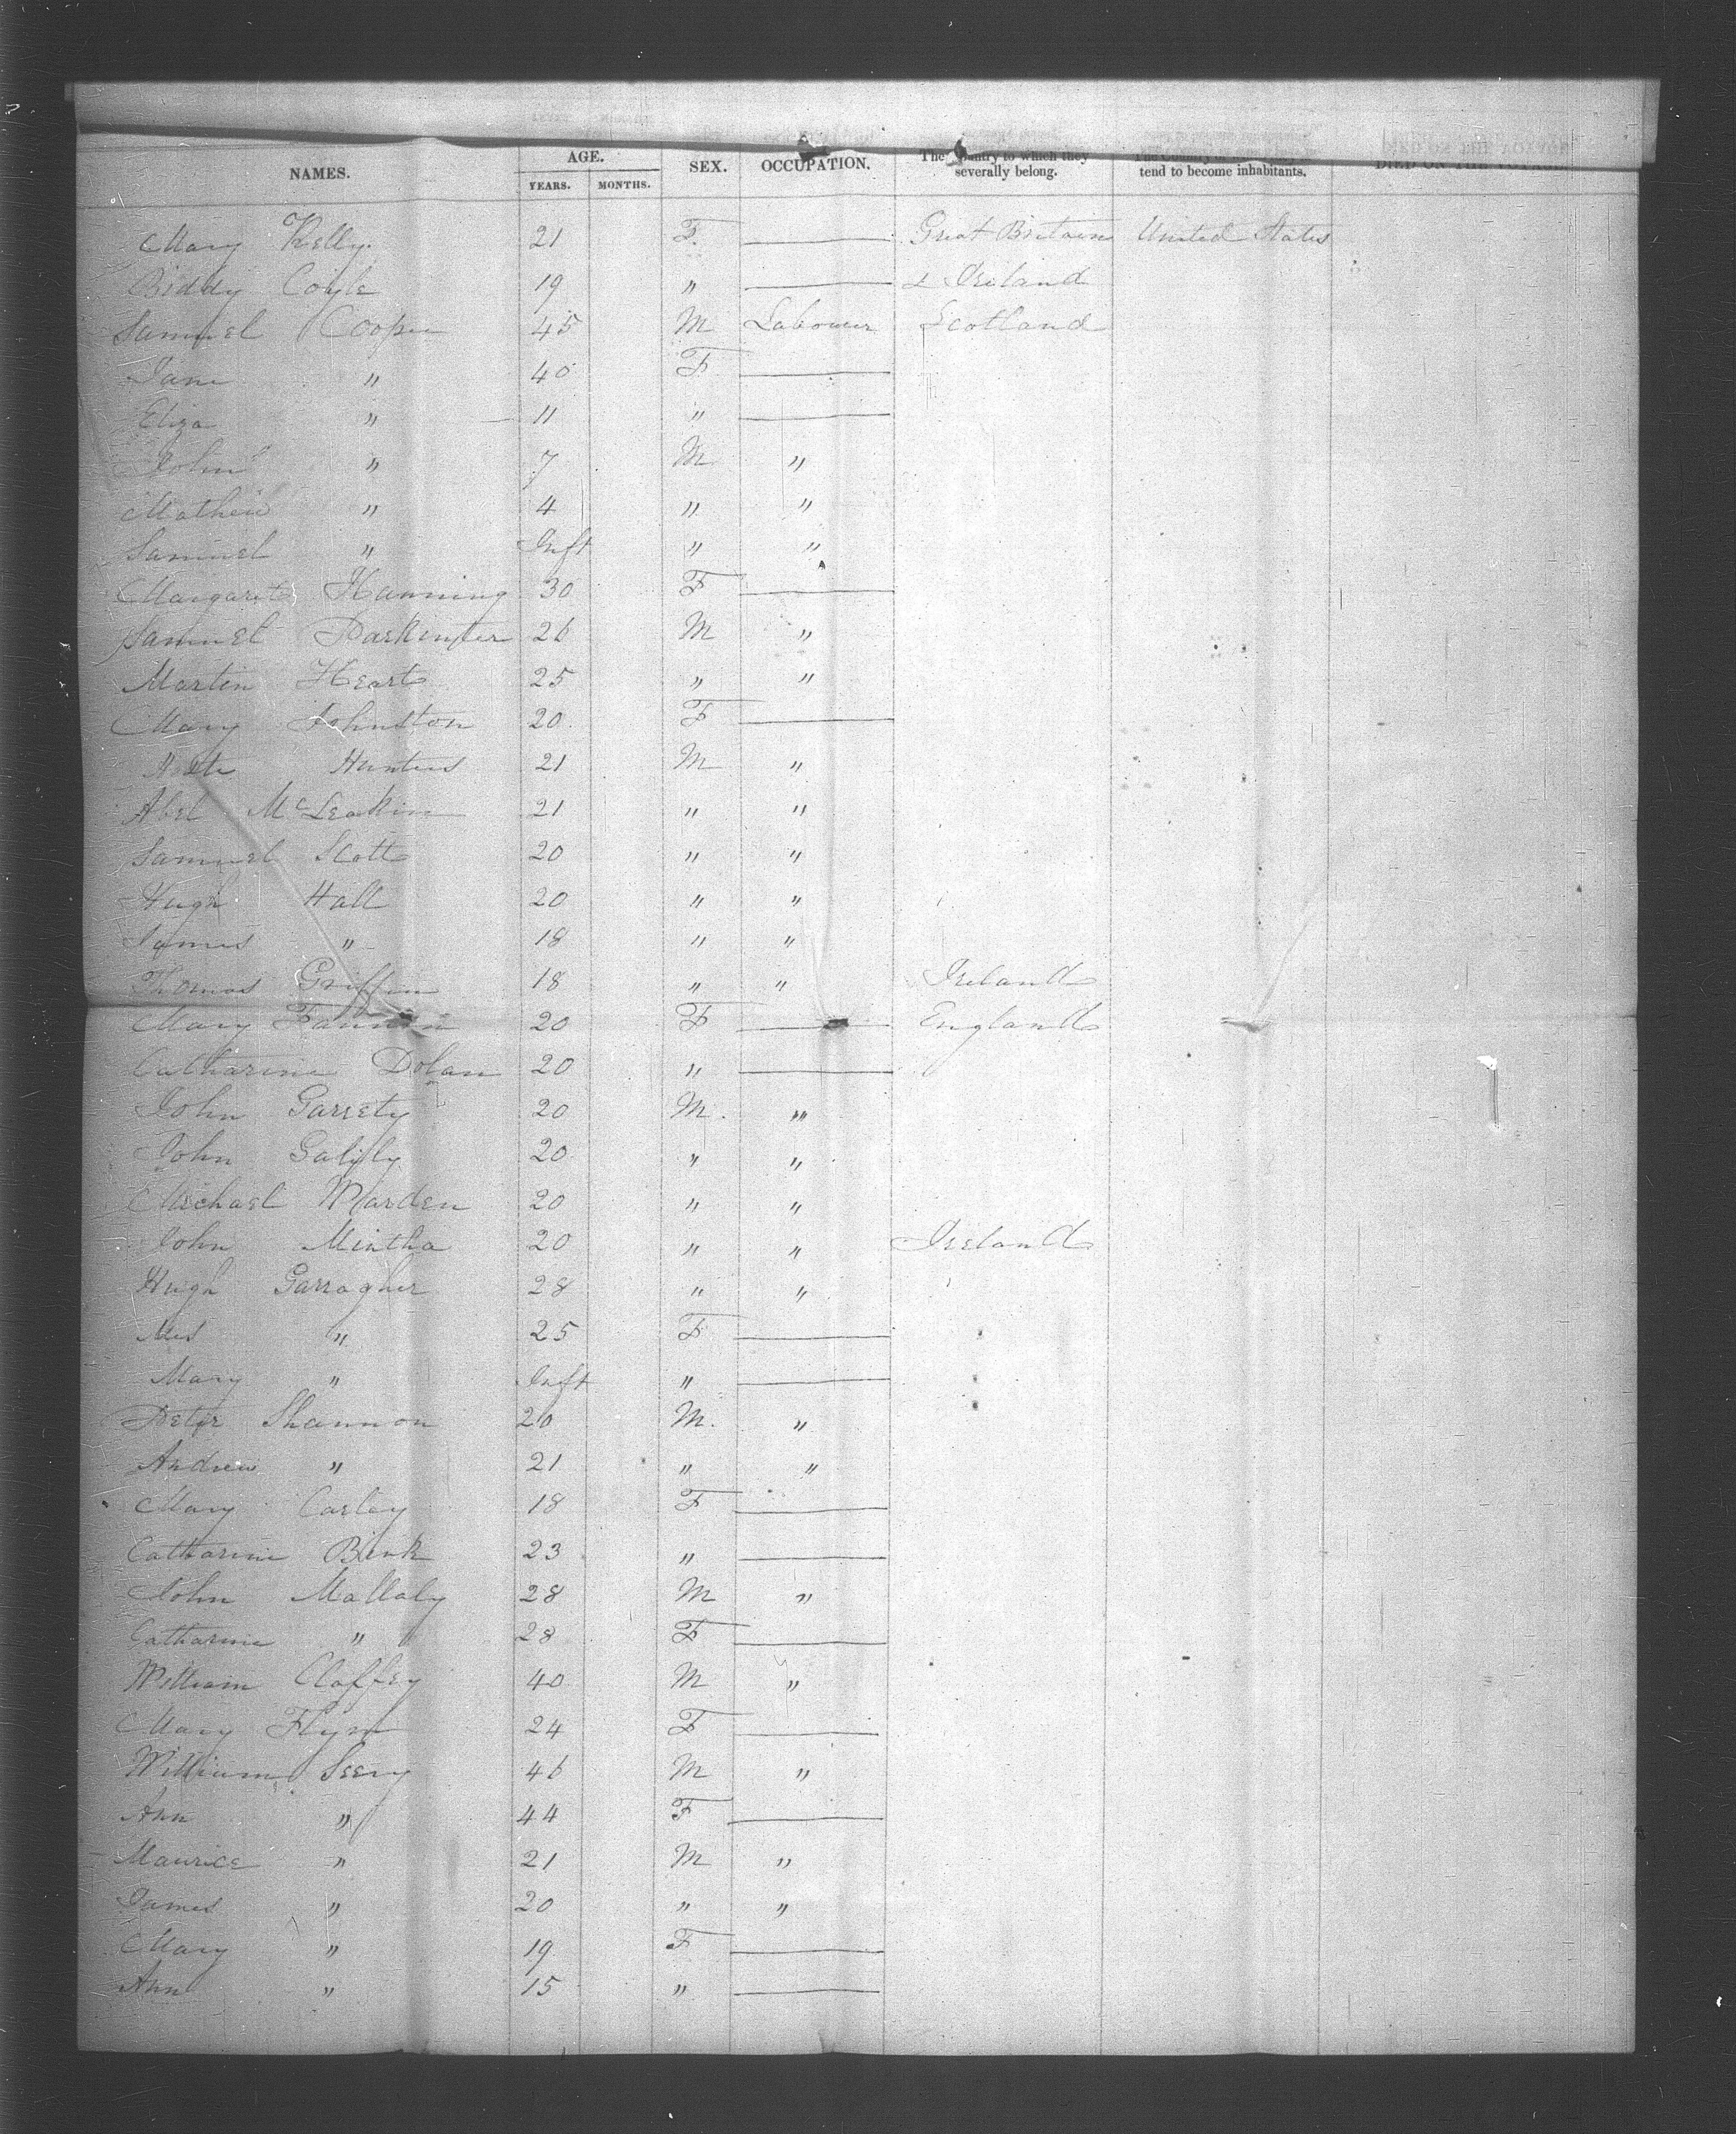 NAMES. AGE. YEARS. MONTHS. SEX. OCCUPATION. The Country to which they severally belong. tend to become inhabitants. DIED ON THE VOYAGE.
Mary Kelly 21 F. Great Britain United States
Biddy Coyle 19 " & Ireland
Samuel Cooper 45 M Labourer Scotland
Jane " 40 F
Eliza " 11 "
John " 7 M "
Mathew " 4 " "
Samuel " Inft " "
Margaret Hanning 30 F
Samuel 26 M "
Martin Heart 25 " "
Mary Johnston 20 F
Hunters 21 M "
Abel McLeakin 21 " "
Samuel Scott 20 " "
Hugh Hall 20 " "
James " 18 " "
Thomas Griffin 18 " " Ireland
Mary 20 F England
Catharine Dolan 20 "
John Garrety 20 M. "
John 20 " "
Michael Warden 20 " "
John Mintha 20 " " Ireland
Hugh Garragher 28 " "
Mrs " 25 F
Mary " Inft "
Peter Shannon 20 M. "
Andrew " 21 " "
Mary Carley 18 F
Catharine 23 "
John Mallaly 28 M "
Catharine " 28 F
William Claffey 40 M "
Mary Flynn 24 F
William Seery 46 M "
Ann " 44 F
Maurice " 21 M "
James " 20 " "
Mary " 19 F
Ann " 15 "